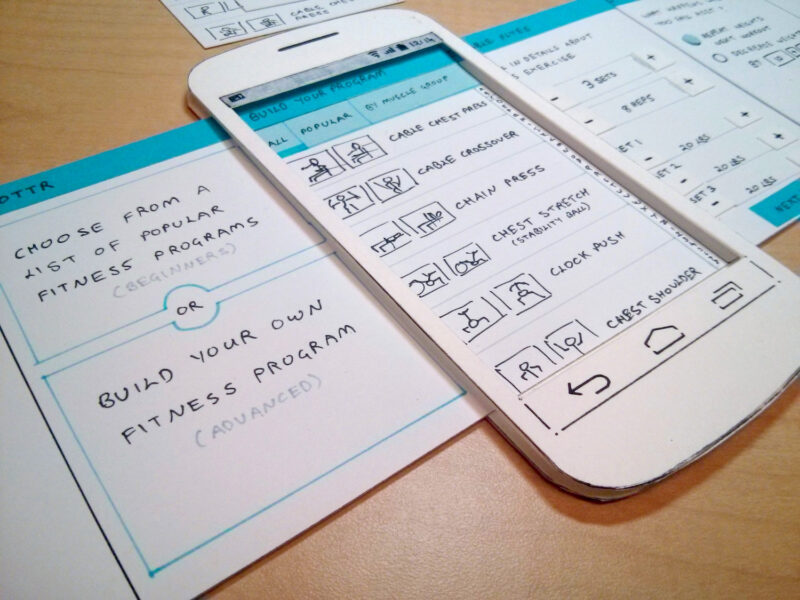 CABLE
PRESS
OTTR
CHOOSE FROM A
LIST OF POPULAR
FITNESS PROGRAMS
(BEGINNERS)
OR
BUILD YOUR OWN
FITNESS PROGRAM
(ADVANCED)
BUILD YOUR PROGRAM
ALL POPULAR BY MUSCLE GROUP
CABLE CHEST PRESS
CABLE CROSSOVER
CHAIN PRESS
CHEST STRETCH
(STABILITY BALL)
CLOCK PUSH
CHEST SHOULDER
FLYES
IN DETAILS ABOUT
EXERCISE
- 3 SETS +
- 8 REPS +
SET 1 - 20 LBS +
SET 2 - 20 LBS +
SET 3 - 20 LBS +
WHAT HAPPENS
REPEAT WEIGHTS
NEXT WORKOUT
DECREASE WEIGHTS
BY
NEXT